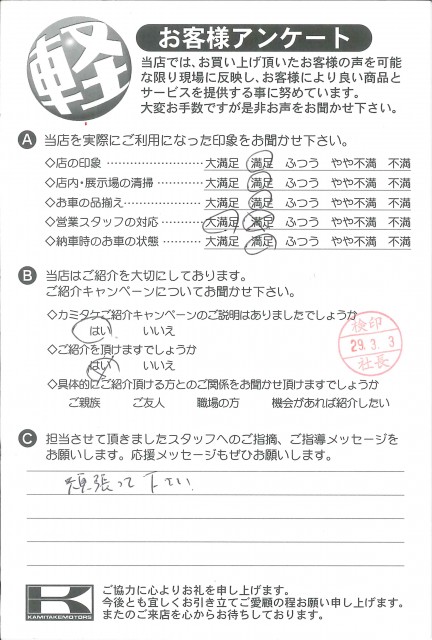 軽
お客様アンケート
当店では、お買い上げ頂いたお客様の声を可能
な限り現場に反映し、お客様により良い商品と
サービスを提供する事に努めています。
大変お手数ですが是非お声をお聞かせ下さい。
A 当店を実際にご利用になった印象をお聞かせ下さい。
◇店の印象 ⋯⋯⋯⋯⋯⋯ 大満足 満足 ふつう やや不満 不満
◇店内・展示場の清掃⋯⋯⋯ 大満足 満足 ふつう やや不満 不満
◇お車の品揃え⋯⋯⋯⋯⋯ 大満足 満足 ふつう やや不満 不満
◇営業スタッフの対応⋯⋯⋯ 大満足 満足 ふつう やや不満 不満
◇納車時のお車の状態⋯⋯⋯ 大満足 満足 ふつう やや不満 不満
B 当店はご紹介を大切にしております。
ご紹介キャンペーンについてお聞かせ下さい。
◇カミタケご紹介キャンペーンのご説明はありましたでしょうか
はい いいえ
◇ご紹介を頂けますでしょうか
はい いいえ
◇具体的にご紹介頂ける方とのご関係をお聞かせ頂けますでしょうか
ご親族 ご友人 職場の方 機会があれば紹介したい
検印
29.3.3
社長
C 担当させて頂きましたスタッフへのご指摘、ご指導メッセージを
お願いします。応援メッセージもぜひお願いします。
頑張って下さい
K
KAMITAKEMOTORS
ご協力に心よりお礼を申し上げます。
今後とも宜しくお引き立てご愛顧の程お願い申し上げます。
またのご来店を心からお待ちしております。